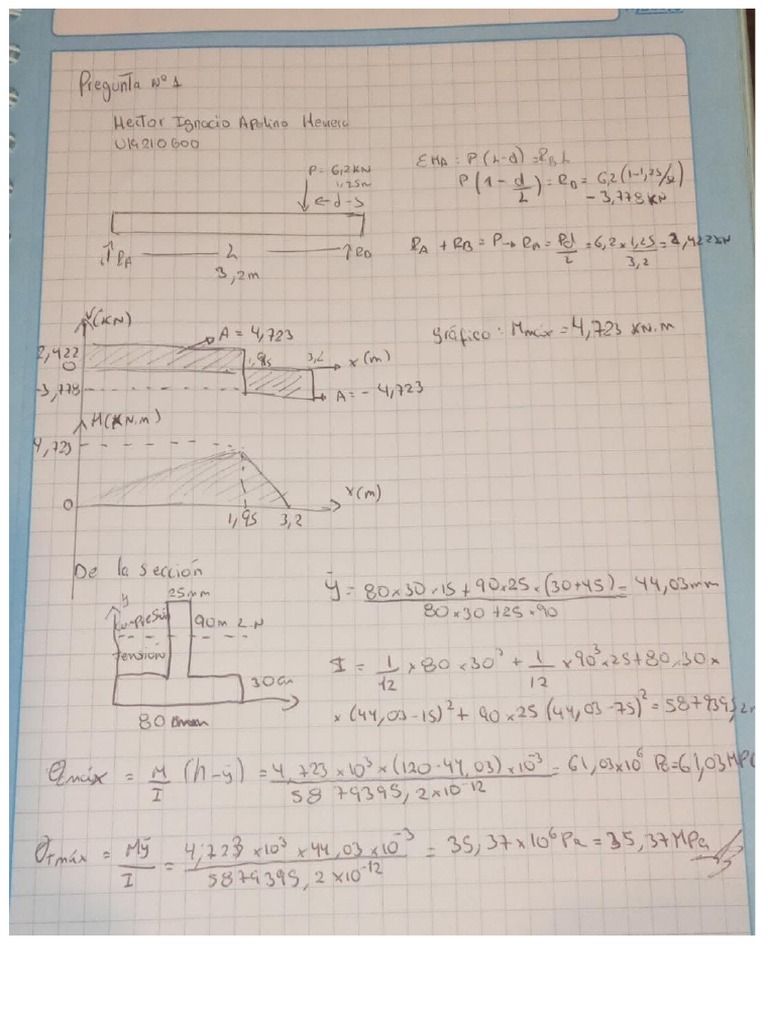 Pregunta Nº 1
Hector Ignacio Apolino
U14210600
P = 6,2 KN
1,25m
←d→
RA L RB
3,2m
ΣMA : P(L-d) = RB L
P(1 - d/L) = RB = 6,2(1-1,25/3,2)
- 3,778 KN
RA + RB = P → RA = Pd/2 = 6,2 x 1,25/3,2 = 2,422 KN
V(KN)
A = 4,723
2,422
0
1,95 3,2 x (m)
-3,778
A = - 4,723
gráfico : Mmáx = 4,723 KN.m
M(KN.m)
4,723
0
1,95 3,2
x(m)
De la sección
y
25mm
compresión
90m L.N
tensión
30
80
ȳ = 80x30x15 + 90x25x(30+45) / 80x30+25x90 = 44,03mm
I = 1/12 x 80 x 30³ + 1/12 x 90³x25+80x30x
x (44,03-15)² + 90x25 (44,03-75)² = 5879395,2
σcmáx = M/I (h-ȳ) = 4,723 x10³ x (120-44,03) x10⁻³ / 5879395,2x10⁻¹² = 61,03x10⁶ Pa=61,03MPa
σTmáx = Mȳ/I = 4,723 x10³ x 44,03 x10⁻³ / 5879395,2x10⁻¹² = 35,37x10⁶Pa = 35,37MPa